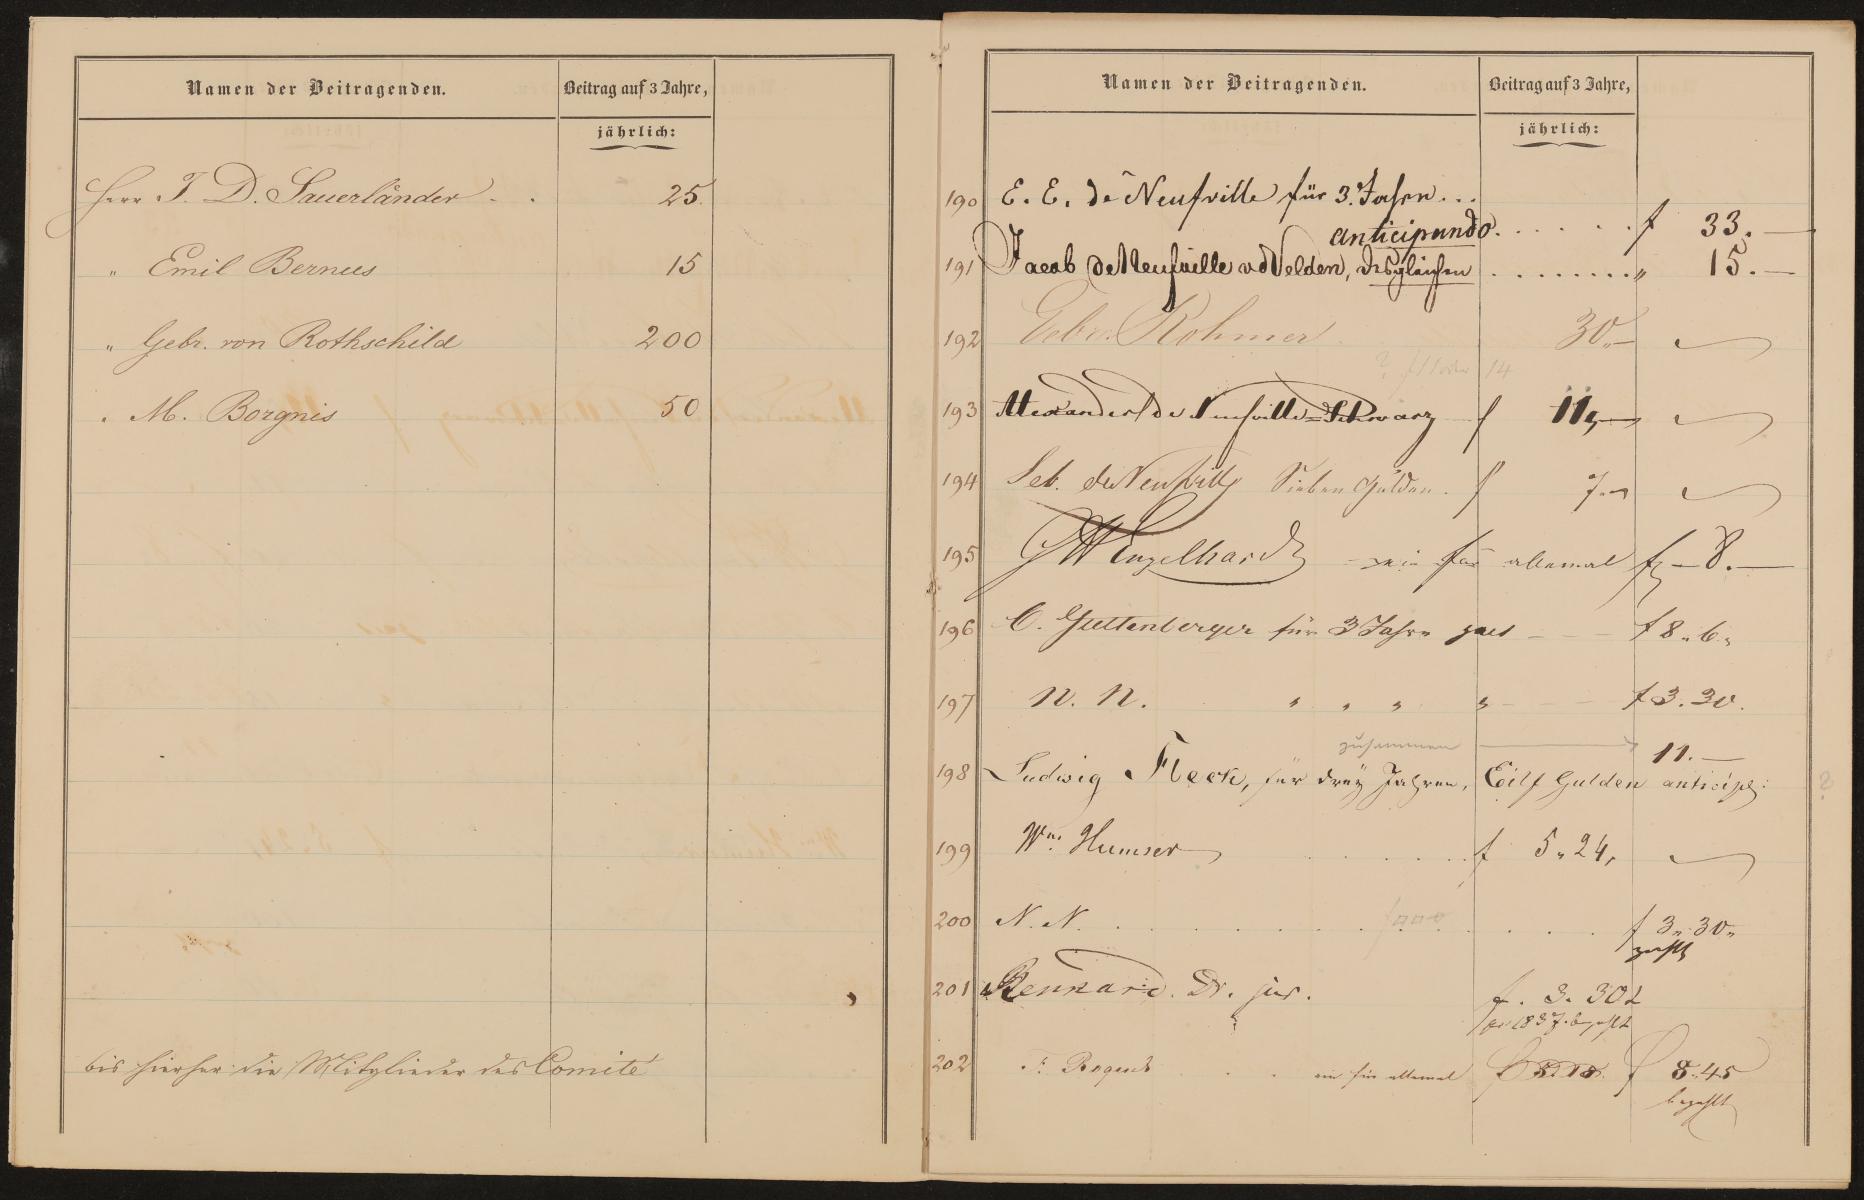 Namen der Beitragenden. Beitrag auf 3 Jahre,
jährlich:
Herr J. D. Sauerländer . . 25.
" Emil Bernus 15
" Gebr. von Rothschild 200
" M. Borgnis 50
bis hierher die Mitglieder des Comité
Namen der Beitragenden. Beitrag auf 3 Jahre,
jährlich:
190 E. E. de Neufville für 3. Jahre...
anticipando. . . . . . f 33.—
191 Jacob de Neufville vd Velden, desgleichen . . . . . . . . " 15.—
192 Gebr. Rohmer 30.—
? f 11 oder 14
193 Alexander de Neufville=Schwarz f 11,—
194 Seb. de Neufville Sieben Gulden. f 7.—
195 GW Engelhard ein für allemal f — 8.—
196 C. Guttenberger für 3 Jahre f 8 " 6 "
197 N. N. " " " " f 3. 30.
zusammen 11.—
198 Ludwig Fleck, für drey Jahren, Eilf Gulden anticip:
199 Wm. Humser . . . . . . f 5 " 24,
200 N. N. . . . . . . . . . . f 3 " 30 "
201 Dr. jur. f. 3. 30
pr 1837. bezahlt
202 ein für allemal f 8.45
bezahlt